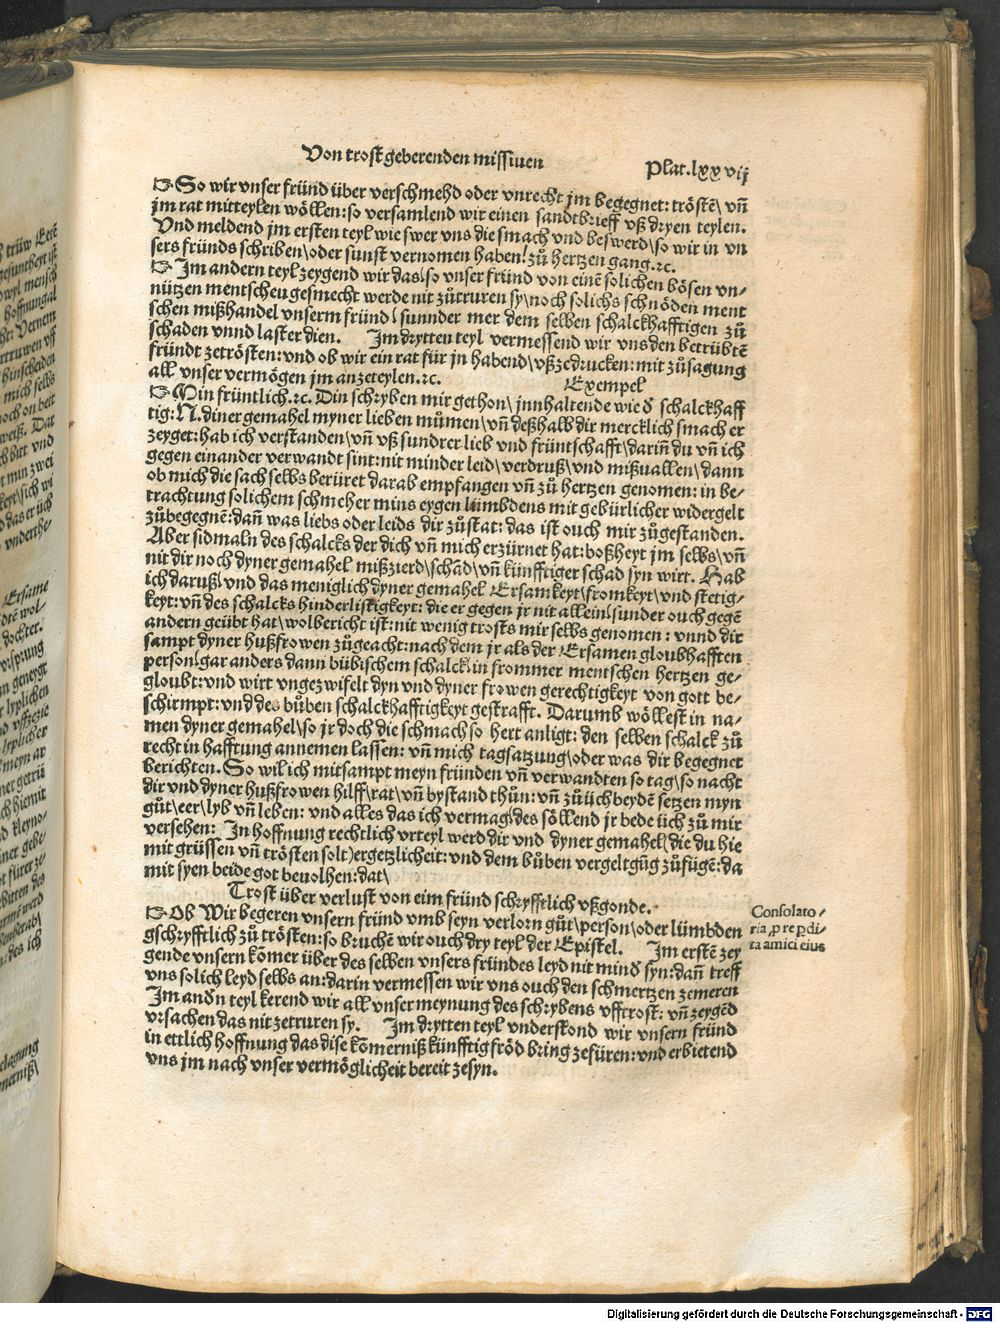 Von trost geberenden missiuen
Plat. lxxvij
☞ So wir vnser fründ über verschmehd oder vnrecht jm begegnet: tröstē\ vñ
jm rat mitteylen wöllen: so versamlend wir einen sandtbrieff vß dryen teylen.
Vnd meldend jm ersten teyl wie swer vns die smach vnd beswerd\ so wir in vn
sers fründs schriben\ oder sunst vernomen haben\ zů hertzen gang.⁊c.
☞ Im andern teyl zeygend wir das\ so vnser fründ von einē solichen bösen vn⸗
nützen mentschen gesmecht werde nit zůtruren sy\ noch solichs schnöden ment
schen mißhandel vnserm fründ\ sunnder mer dem selben schalckhafftigen zů
schaden vnnd laster dien. Im drytten teyl vermessend wir vns den betrübtē
fründt zetrösten: vnd ob wir ein rat für jn habend\ vßzedrucken: mit zůsagung
all vnser vermögen jm anzeteylen.⁊c. Exempel
☞ Min früntlich.⁊c. Din schryben mir gethon\ jnnhaltende wie ð schalckhaff
tig: N. diner gemahel myner lieben můmen\ vñ deßhalb dir mercklich smach er
zeyget: hab ich verstanden\ vñ vß sundrer lieb vnd früntschafft\ dariñ du vñ ich
gegen einander verwandt sint: nit minder leid\ verdruß\ vnd mißuallen\ dann
ob mich die sach selbs berüret darab empfangen vñ zů hertzen genomen: in be⸗
trachtung solichem schmeher mins eygen lümbdens mit gebürlicher widergelt
zůbegegnē: dañ was liebs oder leids dir zůstat: das ist ouch mir zůgestanden.
Aber sidmaln des schalcks der dich vñ mich erzürnet hat: boßheyt jm selbs\ vñ
nit dir noch dyner gemahel mißzierd\ schād\ vñ künfftiger schad syn wirt. Hab
ich daruß\ vnd das meniglich dyner gemahel Ersamkeyt\ fromkeyt\ vnd stetig⸗
keyt: vñ des schalcks hinderlistigkeyt: die er gegen jr nit allein\ sunder ouch gegē
andern geübt hat\ wolbericht ist: nit wenig trosts mir selbs genomen: vnnd dir
sampt dyner hußfrowen zůgeacht: nach dem jr als der Ersamen gloubhafften
person\ gar anders dann bübischem schalck\ in frommer mentschen hertzen ge⸗
gloubt: vnd wirt vngezwifelt dyn vnd dyner frowen gerechtigkeyt von gott be⸗
schirmpt: vnd des bůben schalckhafftigkeyt gestrafft. Darumb wöllest in na⸗
men dyner gemahel\ so jr doch die schmach so hert anligt: den selben schalck zů
recht in hafftung annemen lassen: vñ mich tagsatzung\ oder was dir begegnet
berichten. So wil ich mitsampt meyn fründen vñ verwandten so tag\ so nacht
dir vnd dyner hußfrowen hilff\ rat\ vñ bystand thůn: vñ zů üch beydē setzen myn
gůt\ eer\ lyb vñ leben: vnd alles das ich vermag\ des söllend jr bede üch zů mir
versehen: In hoffnung rechtlich vrteyl werd dir vnd dyner gemahel (die du hie
mit grüssen vñ trösten solt) ergetzlicheit: vnd dem bůben vergeltgūg zůfügē: da
mit syen beide got beuolhen: dat\
Trost über verlust von eim fründ schryfftlich vßgonde.
☞ Ob Wir begeren vnsern fründ vmb seyn verlorn gůt\ person\ oder lümbden
gschryfftlich zů trösten: so bruchē wir ouch dry teyl der Epistel. Im erstē zey
gende vnsern kōmer über des selben vnsers fründes leyd nit minð syn: dañ treff
vns solich leyd selbs an: darin vermessen wir vns ouch den schmertzen zemeren
Im anðn teyl kerend wir all vnser meynung des schrybens vff trost: vñ zeygēd
vrsachen das nit zetruren sy. Im drytten teyl vnderstond wir vnsern fründ
in ettlich hoffnung das dise kōmerniß künfftig fröd bring zefüren: vnd erbietend
vns jm nach vnser vermöglicheit bereit zesyn.
Consolato⸗
ria ꝓ re ꝑdi⸗
ta amici eius
Digitalisierung gefördert durch die Deutsche Forschungsgemeinschaft - DFG